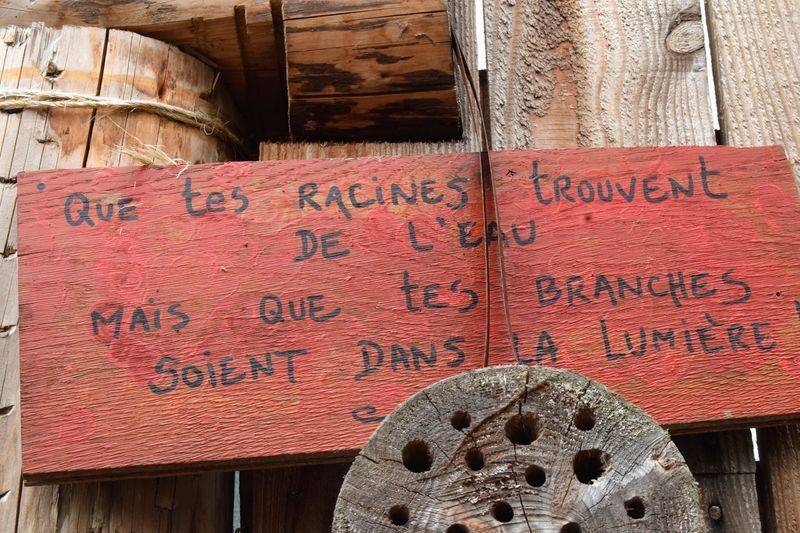 QUE tes RACINES trouvent
DE L'EAU
Mais QUE tes BRANCHES
SOIENT DANS LA LUMIÈRE